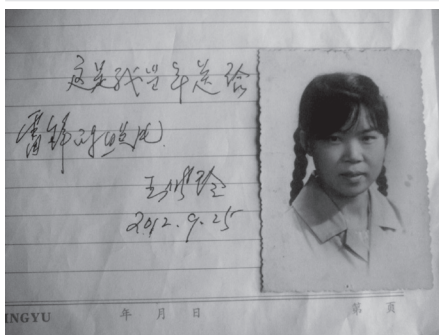 这是我当年送给
雷锋的照片
王佩玲
2012.9.25
INGYU 年 月 日 第 頁